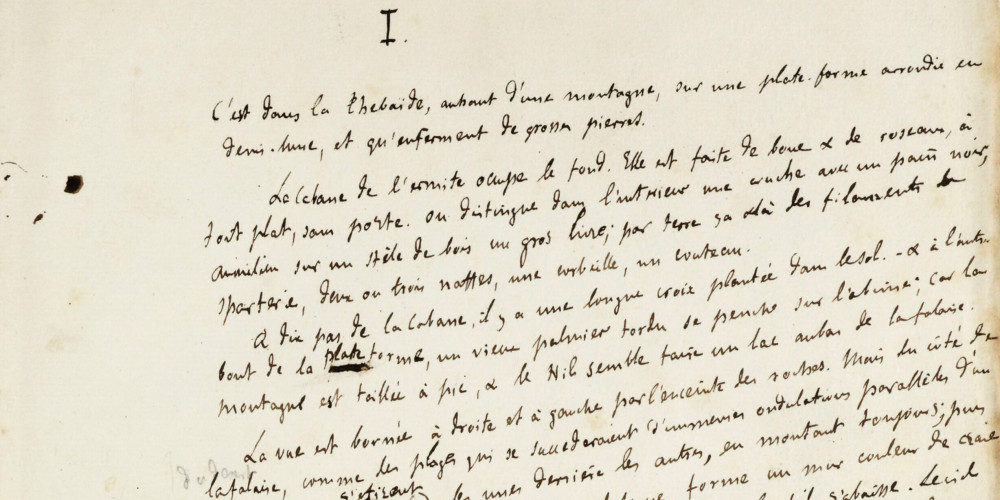 I.
C'est dans la Thébaïde, au haut d'une montagne, sur une plate-forme arrondie en
demi-lune, et qu'enferment de grosses pierres.
La Cabane de l'ermite occupe le fond. Elle est faite de boue & de roseaux, à
toit plat, sans porte. On distingue dans l'intérieur une cruche avec un pain noir,
au milieu sur un stèle de bois un gros livre; par terre ça & là des filaments de
sparterie, deux ou trois nattes, une corbeille, un couteau.
A dix pas de la cabane, il y a une longue croix plantée dans le sol. - & à l'autre
bout de la plate forme, un vieux palmier tordu se penche sur l'abîme; car la
montagne est taillée à pic, & le Nil semble faire un lac au bas de la falaise.
La vue est bornée à droite et à gauche par l'enceinte des roches. Mais du côté du
la falaise, comme des plages qui se succéderaient d'immenses ondulations parallèles d'un
s'étirent les unes derrière les autres, en montant toujours; puis
forme un mur couleur de craie
s'abaisse. Le ciel